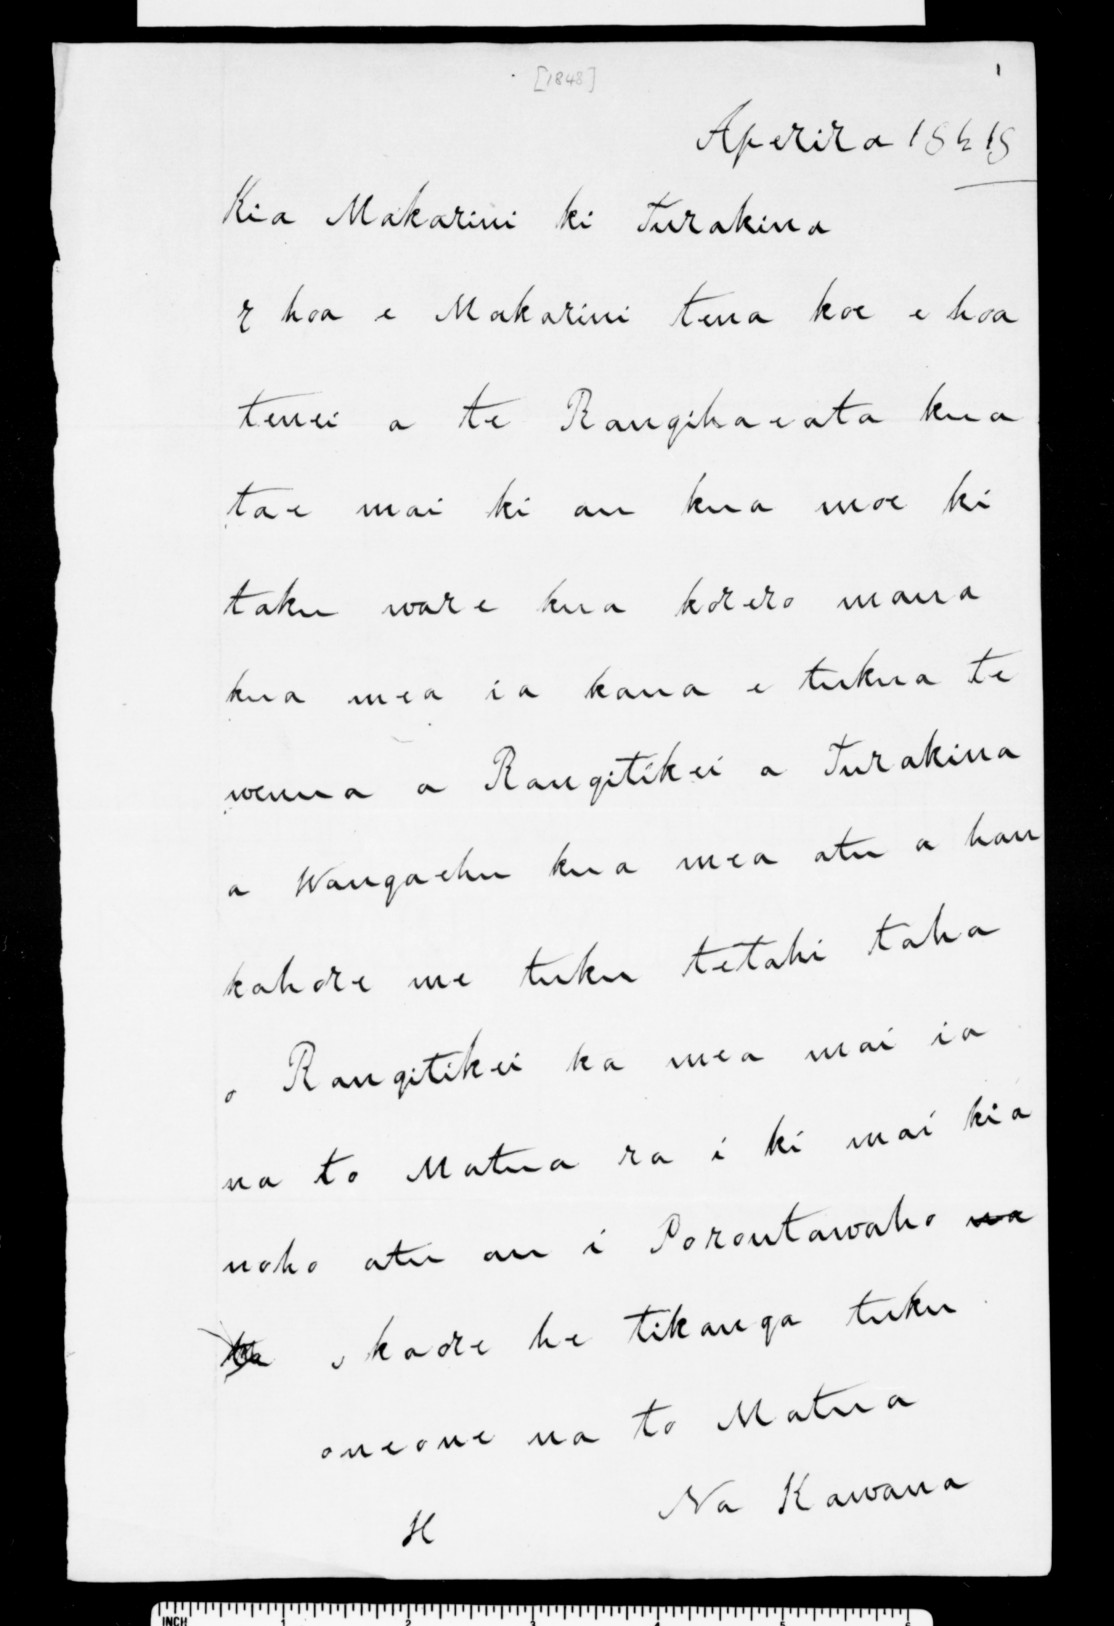 [1848]
1
Aperira 1848
Kia Makarini ki Turakina
E hoa e Makarini tena koe e hoa
tenei a te Rangihaeata kua
tae mai ki au kua moe ki
taku ware kua korero maua
kua mea ia kaua e tukua te
wenua a Rangitikei a Turakina
a Wangaehu kua mea atu a hau
kahore me tuku tetahi taha
o Rangitikei ka mea mai ia
na to Matua ra i ki mai kia
noho atu au i Poroutawaho na
kaore he tikanga tuku
oneone na to Matua
Na Kawana
H
INCH 1 2 3 4 5 6